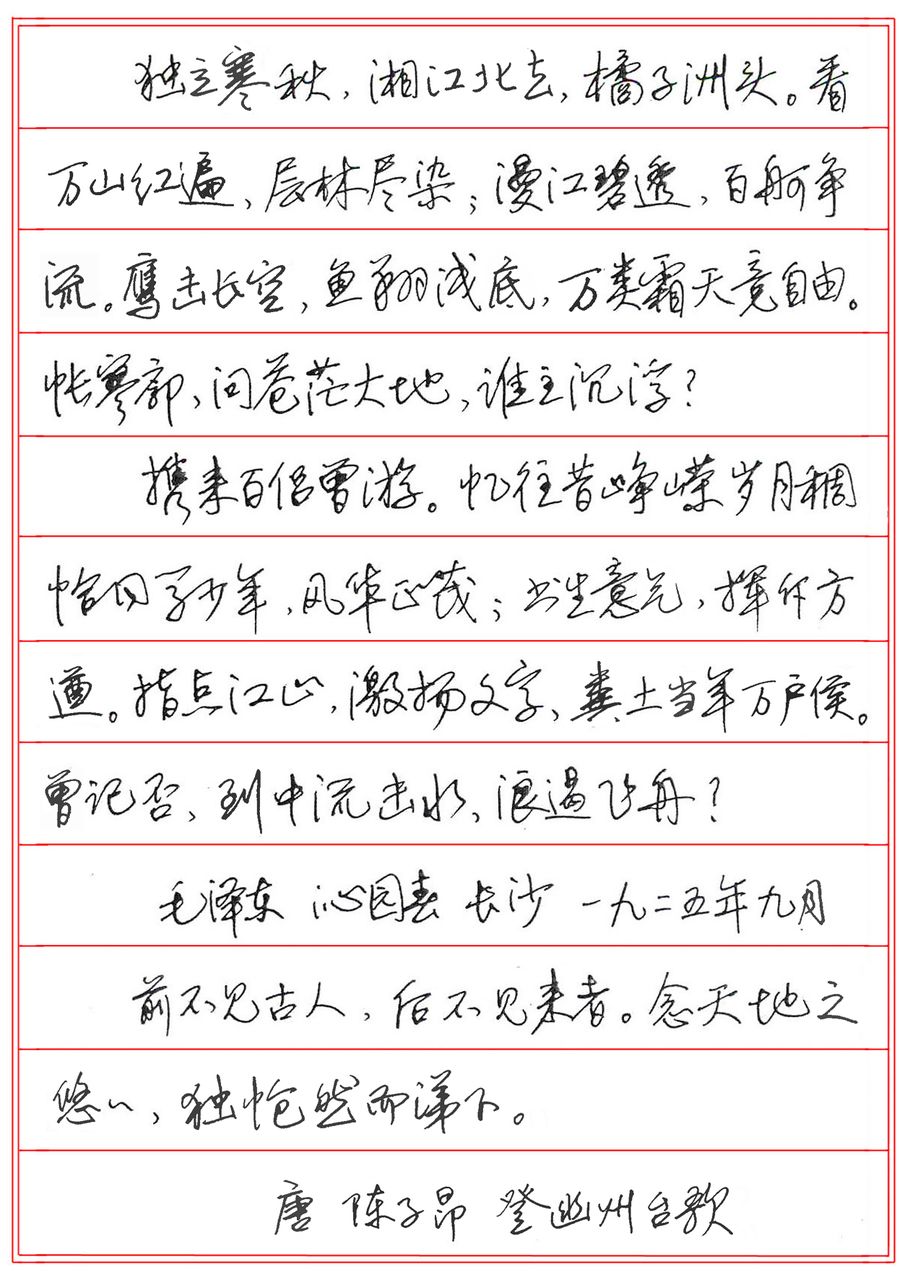 独立寒秋，湘江北去，橘子洲头。看
万山红遍，层林尽染；漫江碧透，百舸争
流。鹰击长空，鱼翔浅底，万类霜天竞自由。
怅寥廓，问苍茫大地，谁主沉浮？
携来百侣曾游。忆往昔峥嵘岁月稠
恰同学少年，风华正茂；书生意气，挥斥方
遒。指点江山，激扬文字，粪土当年万户侯。
曾记否，到中流击水，浪遏飞舟？
毛泽东 沁园春 长沙 一九二五年九月
前不见古人，后不见来者。念天地之
悠々，独怆然而涕下。
唐 陈子昂 登幽州台歌